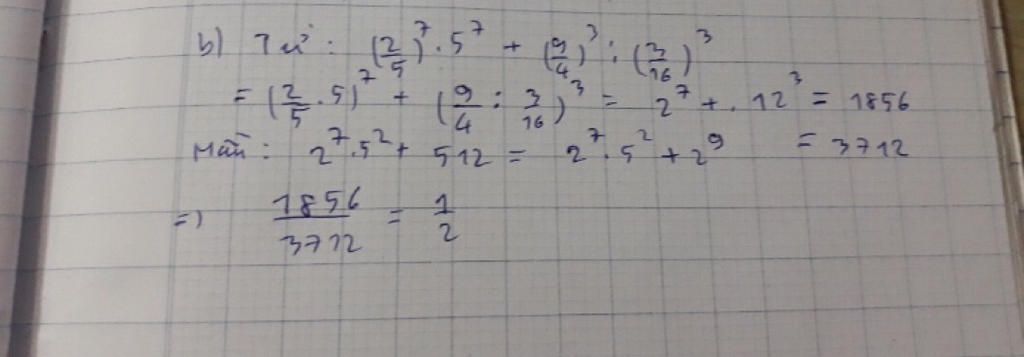 b) Tử : (2/5)^7 . 5^7 + (9/4)^3 : (3/16)^3
= (2/5 . 5)^7 + (9/4 : 3/16)^3 = 2^7 + . 12^3 = 1856
Mẫu : 2^7 . 5^2 + 512 = 2^7 . 5^2 + 2^9 = 3712
=) 1856/3712 = 1/2